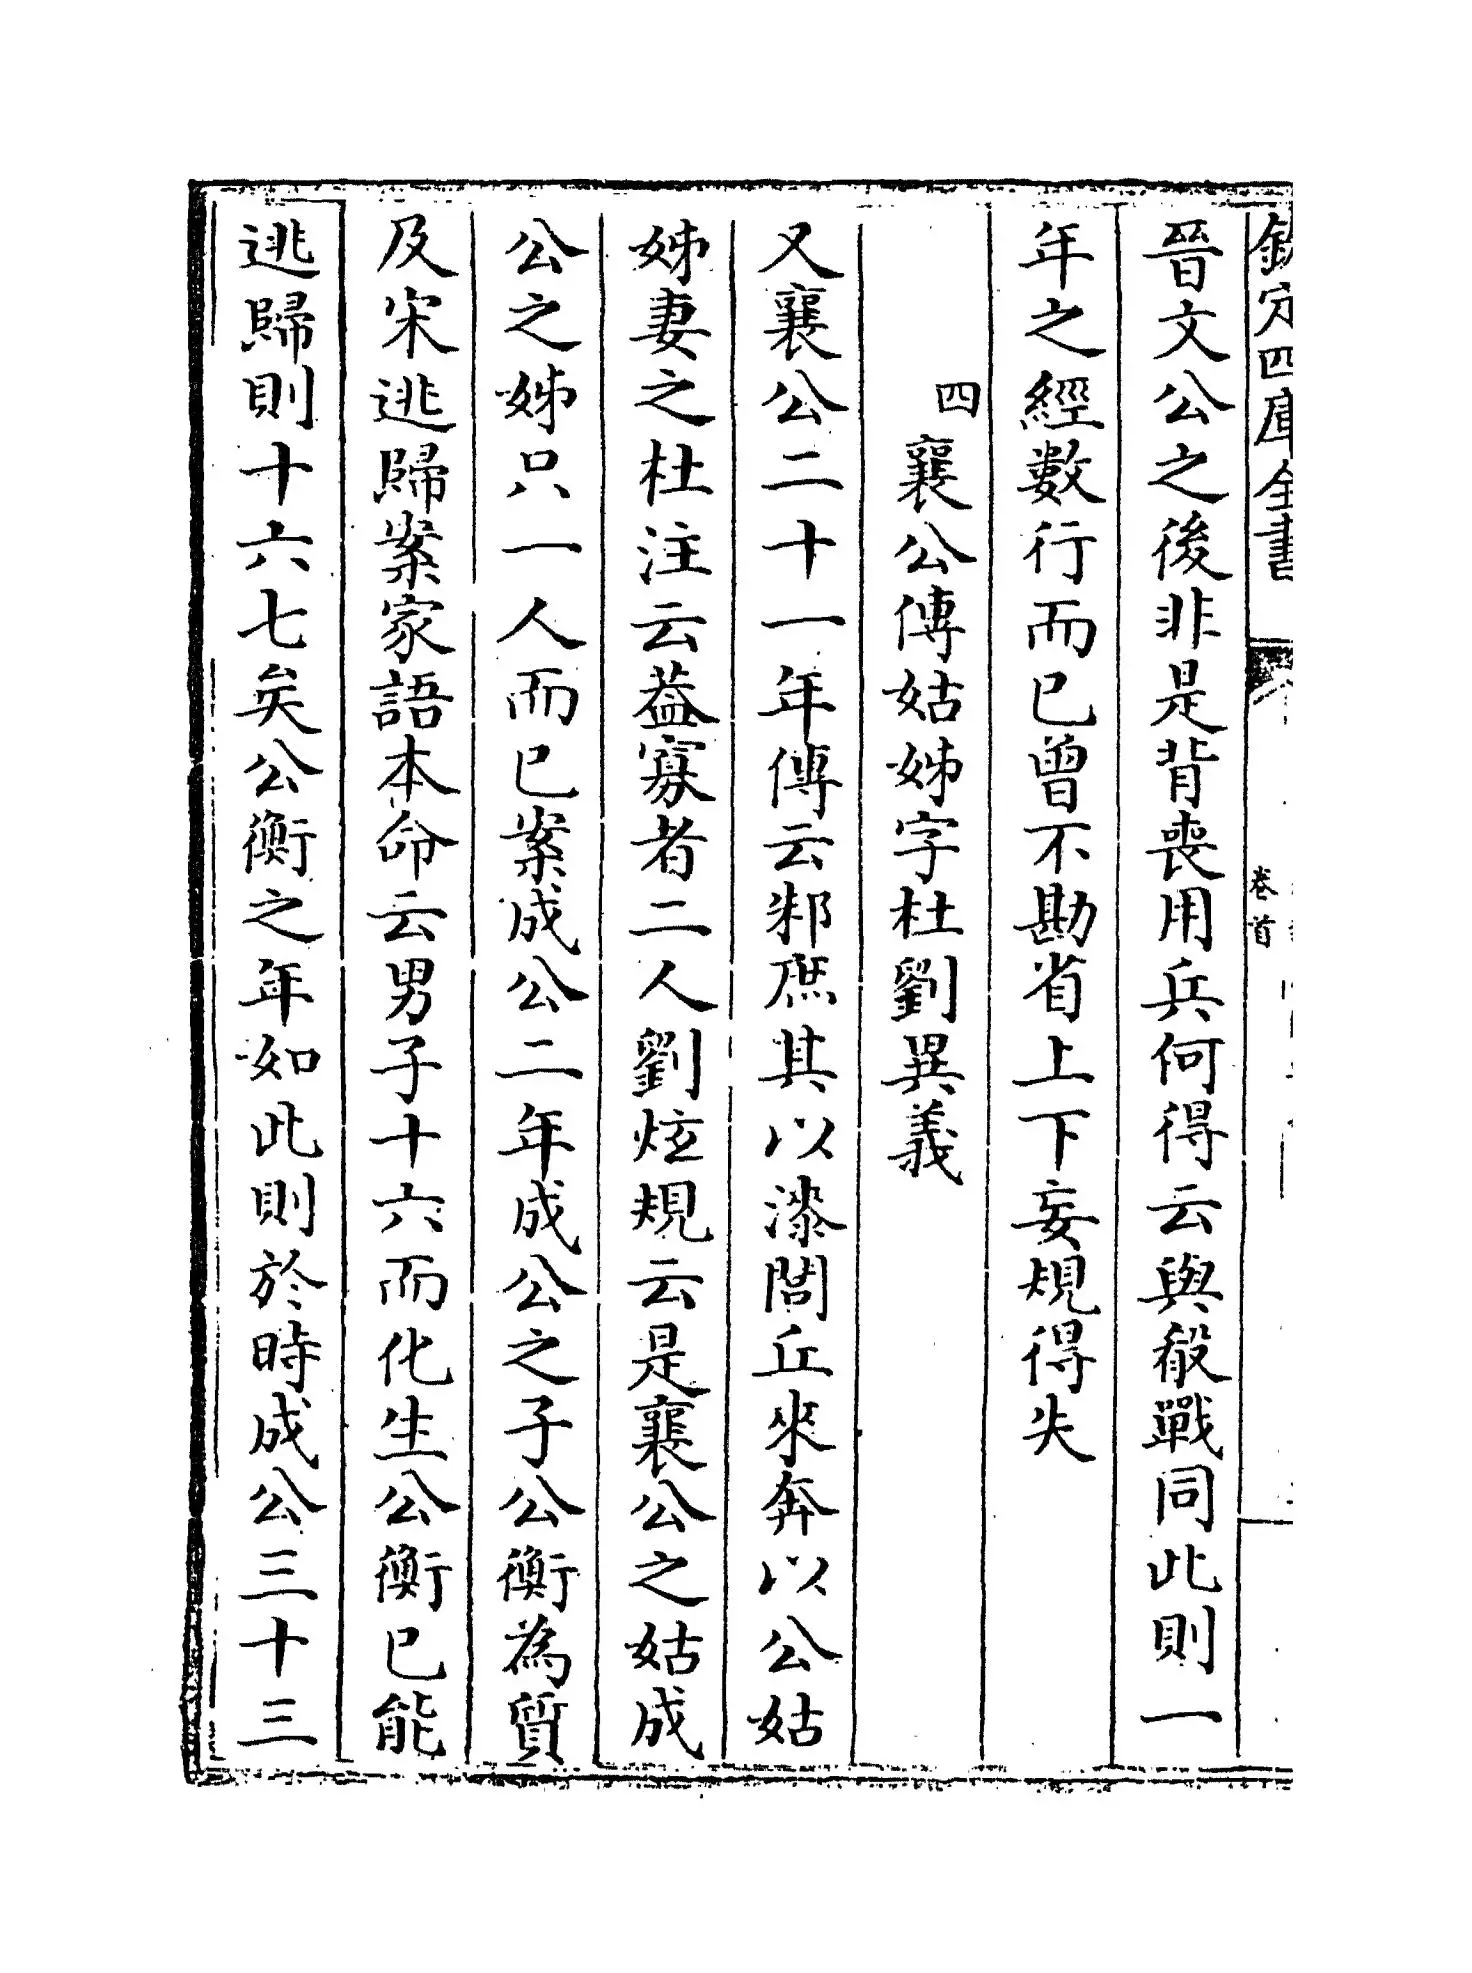 欽定四庫全書
卷首
晉文公之後非是背喪用兵何得云與殽戰同此則一
年之經數行而已曾不勘省上下妄規得失
四襄公傳姑姊字杜劉異義
又襄公二十一年傳云邾庶其以漆閭丘來奔以公姑
姊妻之杜注云葢寡者二人劉炫規云是襄公之姑成
公之姊只一人而已案成公二年成公之子公衡為質
及宋逃歸案家語本命云男子十六而化生公衡已能
逃歸則十六七矣公衡之年如此則於時成公三十三